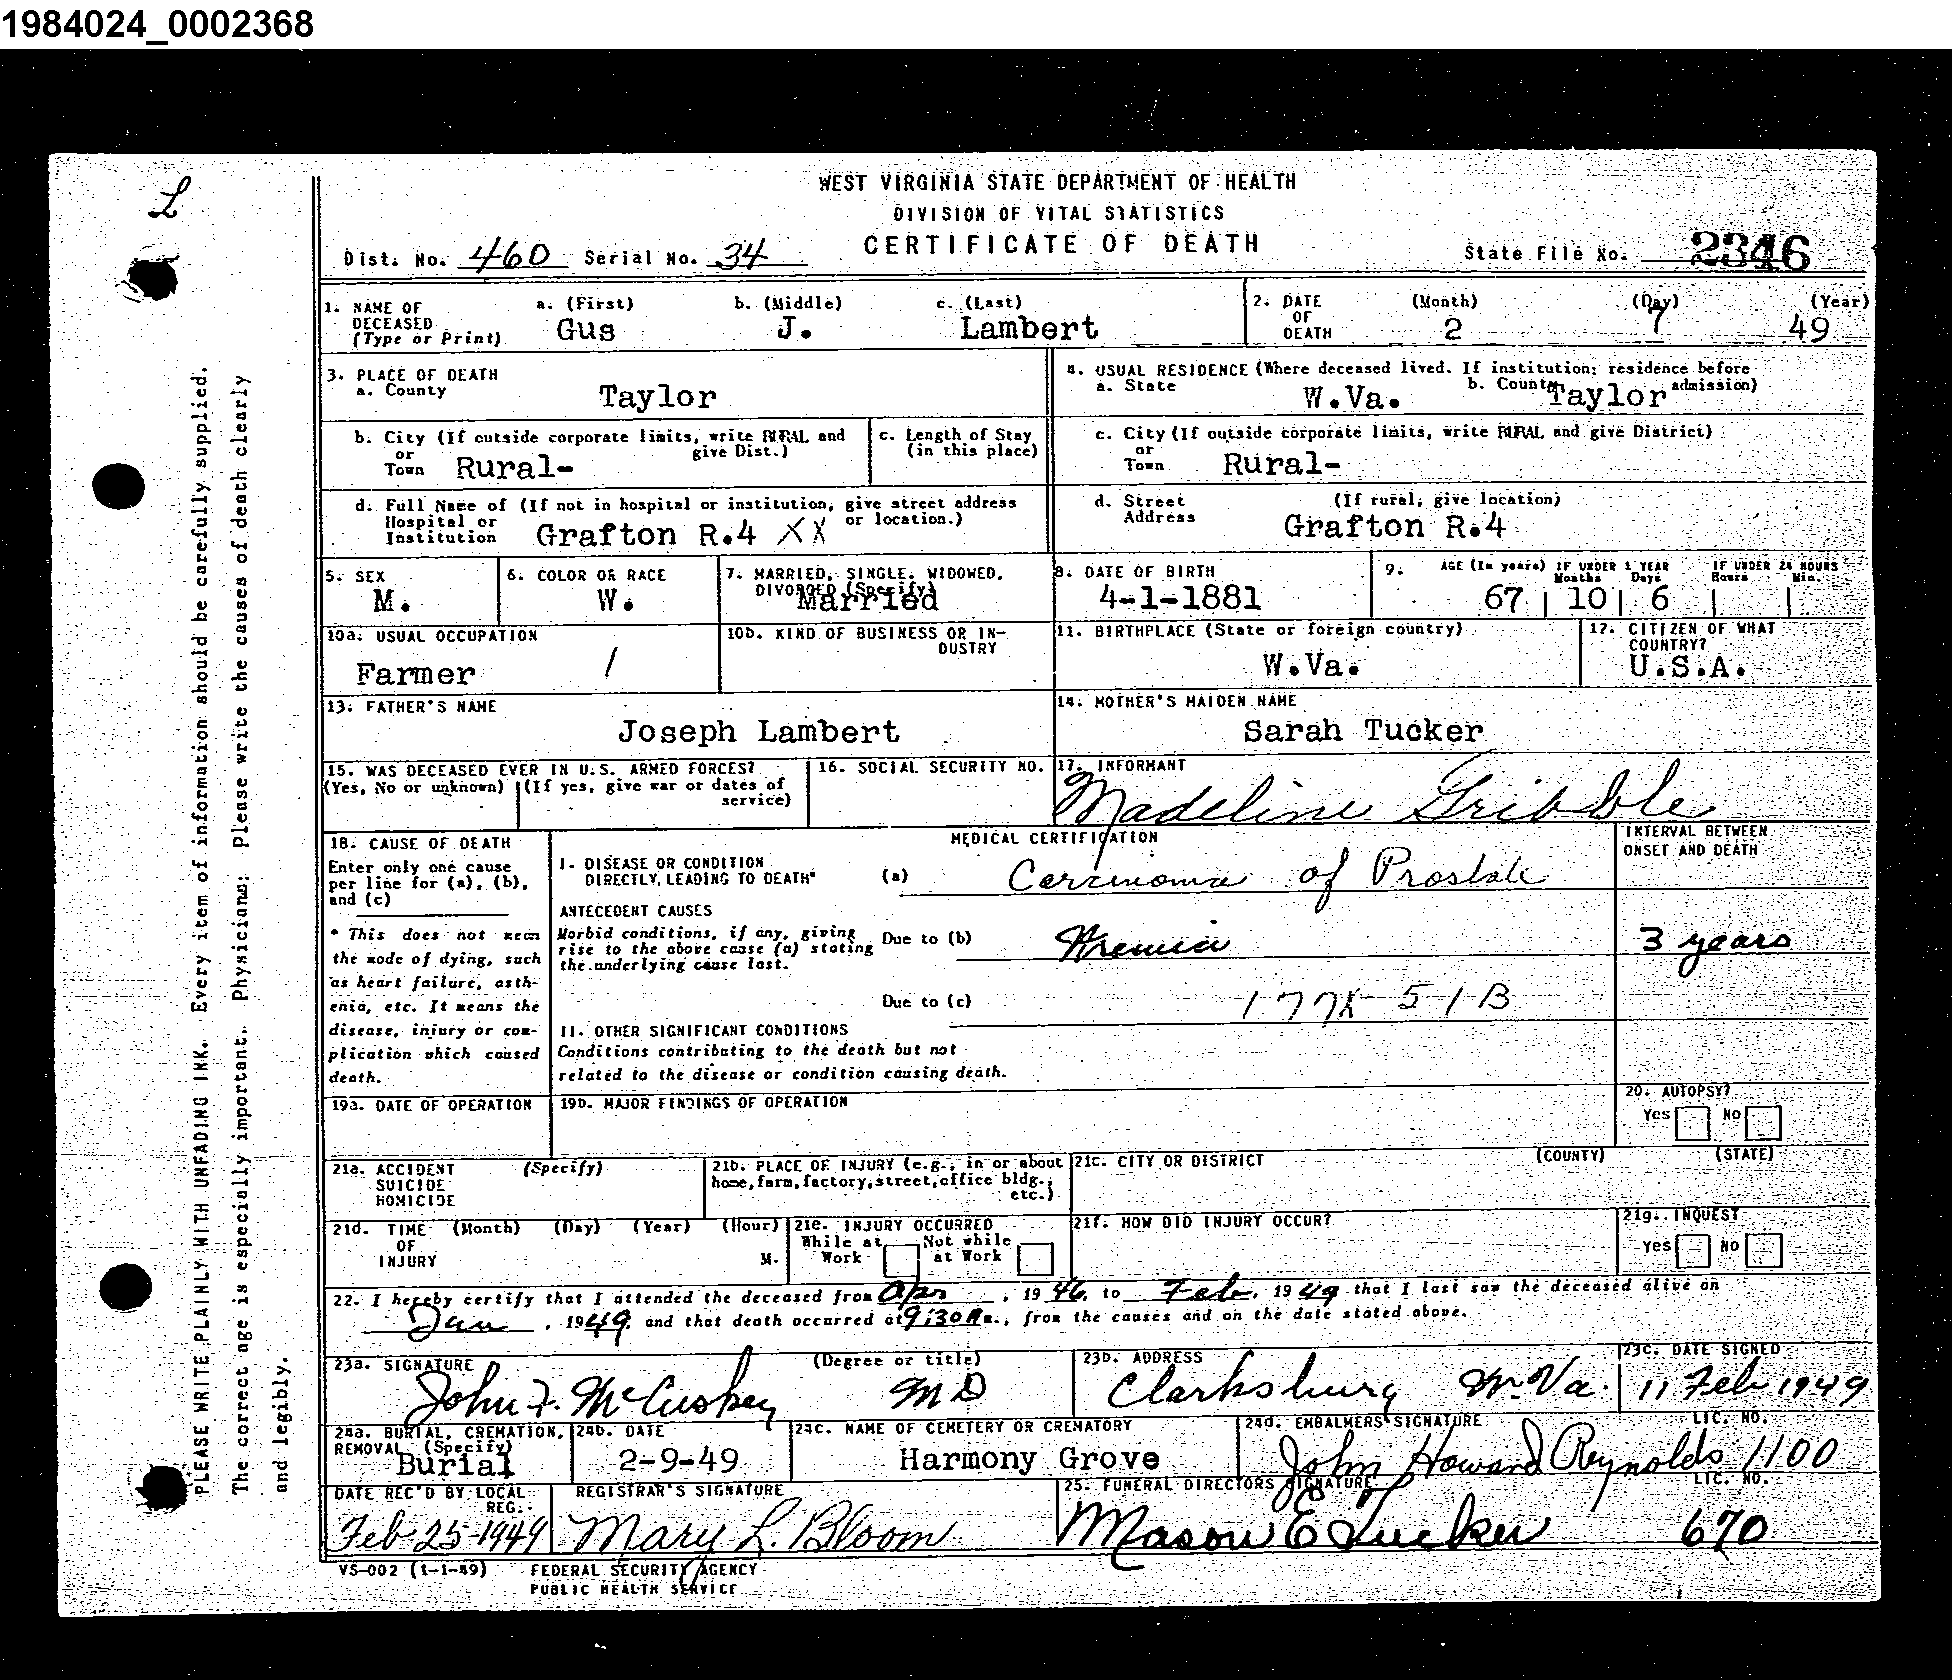 1984024_0002368
L
WEST VIRGINIA STATE DEPARTMENT OF HEALTH
DIVISION OF VITAL STATISTICS
CERTIFICATE OF DEATH
Dist. No. 460 Serial No. 34
State File No. 2346
1. NAME OF DECEASED (Type or Print)
a. (First) Gus
b. (Middle) J.
c. (Last) Lambert
2. DATE OF DEATH
(Month) 2
(Day) 7
(Year) 49
3. PLACE OF DEATH
a. County Taylor
4. USUAL RESIDENCE (Where deceased lived. If institution: residence before admission)
a. State W.Va.
b. County Taylor
b. City (If outside corporate limits, write RURAL and give Dist.)
or Town Rural-
c. Length of Stay (in this place)
c. City (If outside corporate limits, write RURAL and give District)
or Town Rural-
d. Full Name of (If not in hospital or institution, give street address or location.)
Hospital or Institution Grafton R.4 XX
d. Street Address (If rural, give location)
Grafton R.4
5. SEX M.
6. COLOR OR RACE W.
7. MARRIED, SINGLE, WIDOWED, DIVORCED (Specify) Married
8. DATE OF BIRTH 4-1-1881
9. AGE (In years) 67
IF UNDER 1 YEAR Months 10 Days 6
IF UNDER 24 HOURS Hours Min.
10a. USUAL OCCUPATION
Farmer /
10b. KIND OF BUSINESS OR INDUSTRY
11. BIRTHPLACE (State or foreign country)
W.Va.
12. CITIZEN OF WHAT COUNTRY?
U.S.A.
13. FATHER'S NAME
Joseph Lambert
14. MOTHER'S MAIDEN NAME
Sarah Tucker
15. WAS DECEASED EVER IN U.S. ARMED FORCES?
(Yes, No or unknown) (If yes, give war or dates of service)
16. SOCIAL SECURITY NO.
17. INFORMANT
Madeline Gribble
18. CAUSE OF DEATH
Enter only one cause per line for (a), (b), and (c)
* This does not mean the mode of dying, such as heart failure, asthenia, etc. It means the disease, injury or complication which caused death.
MEDICAL CERTIFICATION
INTERVAL BETWEEN ONSET AND DEATH
I. DISEASE OR CONDITION DIRECTLY LEADING TO DEATH*
(a) Carcinoma of Prostate
ANTECEDENT CAUSES
Morbid conditions, if any, giving rise to the above cause (a) stating the underlying cause last.
Due to (b) Uremia
3 years
Due to (c)
177X 51B
II. OTHER SIGNIFICANT CONDITIONS
Conditions contributing to the death but not related to the disease or condition causing death.
19a. DATE OF OPERATION
19b. MAJOR FINDINGS OF OPERATION
20. AUTOPSY?
Yes No
21a. ACCIDENT SUICIDE HOMICIDE (Specify)
21b. PLACE OF INJURY (e.g., in or about home, farm, factory, street, office bldg., etc.)
21c. CITY OR DISTRICT (COUNTY) (STATE)
21d. TIME OF INJURY (Month) (Day) (Year) (Hour) M.
21e. INJURY OCCURRED
While at Work Not while at Work
21f. HOW DID INJURY OCCUR?
21g. INQUEST
Yes No
22. I hereby certify that I attended the deceased from Apr, 1946, to Feb, 1949 that I last saw the deceased alive on
Jan, 1949 and that death occurred at 9:30 A m., from the causes and on the date stated above.
23a. SIGNATURE (Degree or title)
John F. McCuskey MD
23b. ADDRESS
Clarksburg W.Va.
23c. DATE SIGNED
11 Feb 1949
24a. BURIAL, CREMATION, REMOVAL (Specify)
Burial
24b. DATE
2-9-49
24c. NAME OF CEMETERY OR CREMATORY
Harmony Grove
24d. EMBALMERS SIGNATURE LIC. NO.
John Howard Reynolds 1100
DATE REC'D BY LOCAL REG.
Feb 25-1949
REGISTRAR'S SIGNATURE
Mary L. Bloom
25. FUNERAL DIRECTORS SIGNATURE LIC. NO.
Mason E Tucker 670
VS-002 (1-1-49)
FEDERAL SECURITY AGENCY
PUBLIC HEALTH SERVICE
PLEASE WRITE PLAINLY WITH UNFADING INK. Every item of information should be carefully supplied.
The correct age is especially important. Physicians: Please write the causes of death clearly
and legibly.